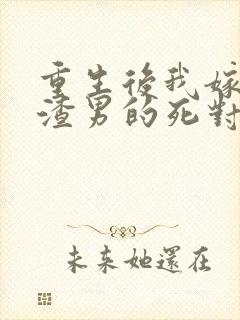 重生後我嫁
渣男的死對
未來她還在